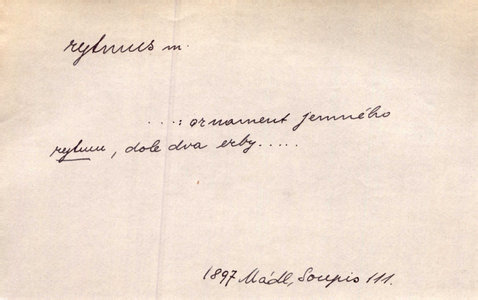 rytmus m.
...: ornament jemného
rytmu, dole dva erby.....
1897 Mádl, Soupis 111.